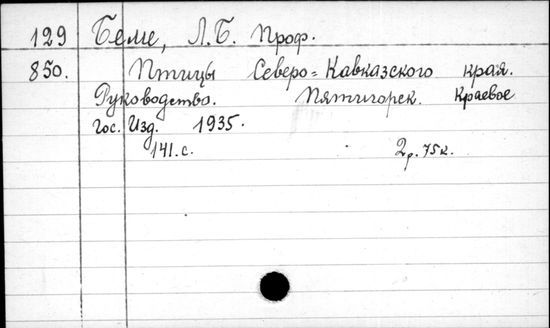 129 Беме, Л.Б. Проф.
850. Птицы Северо=Кавказского края.
Руководство. Пятигорск. Краевое
Гос. Изд. 1935.
141.с. 2р.75к.